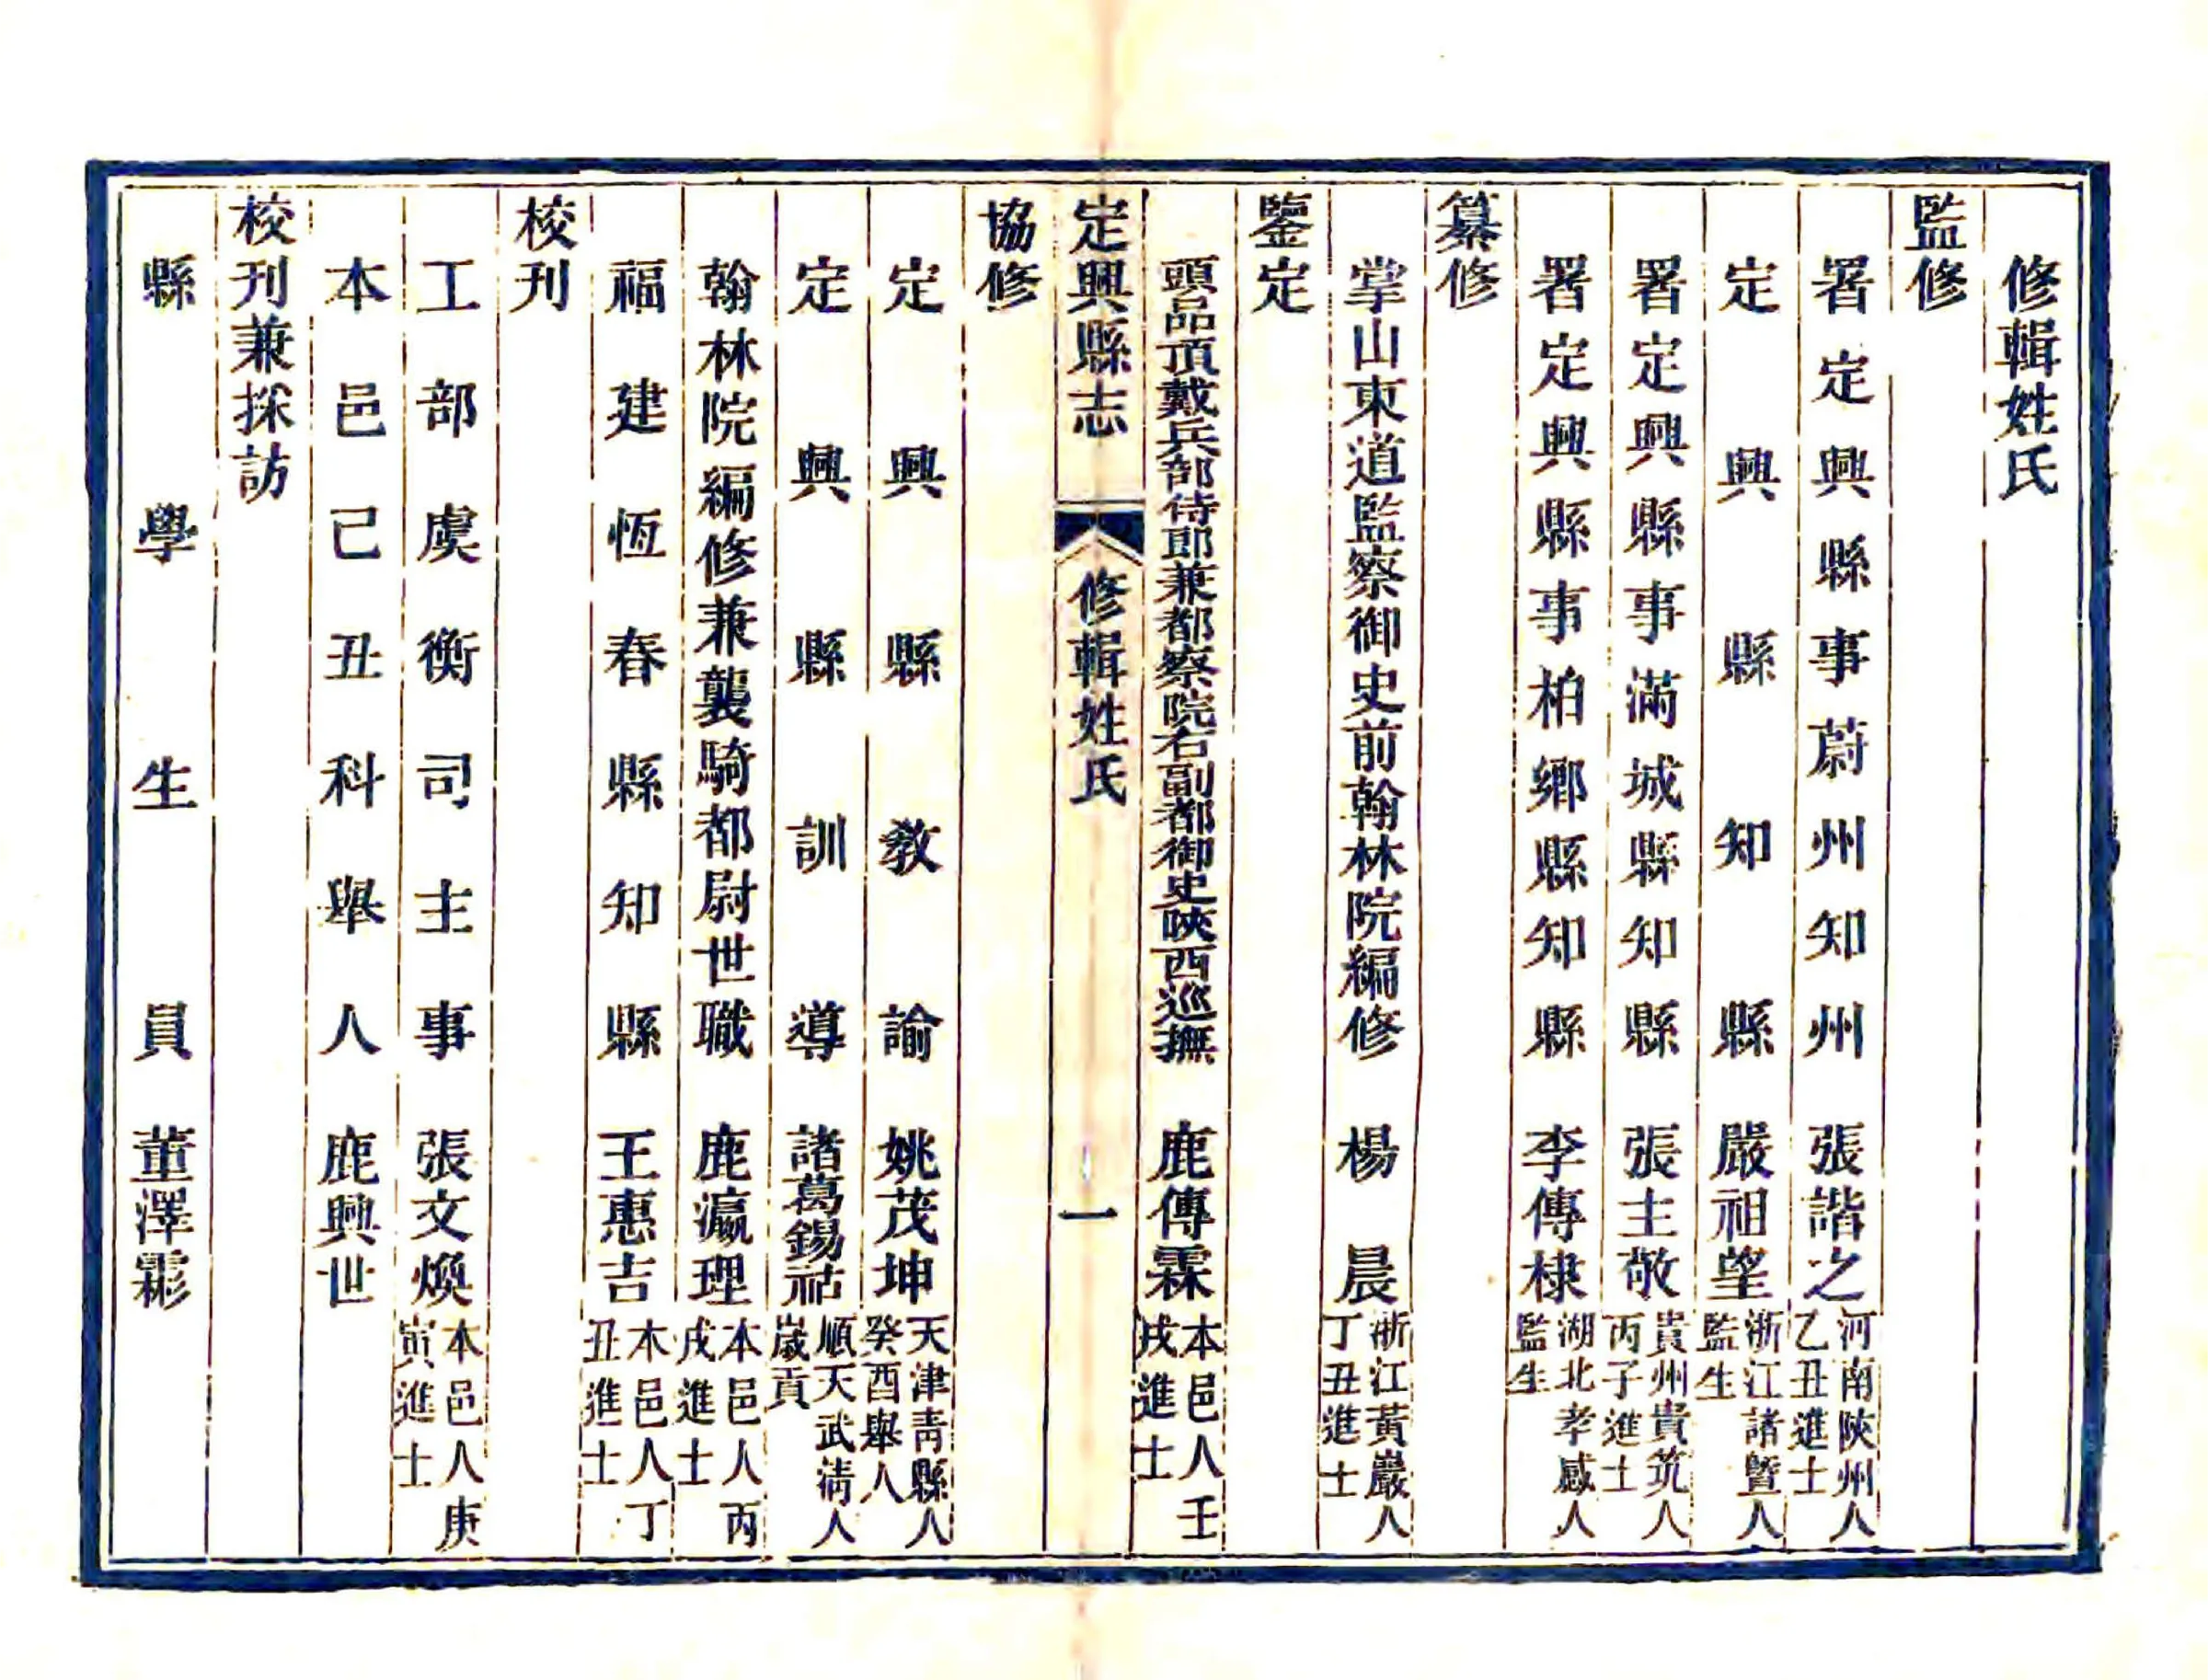 修輯姓氏
監修
署定興縣事蔚州知州 張諧之 河南陝州人乙丑進士
定興縣知縣 嚴祖望 浙江諸暨人監生
署定興縣事滿城縣知縣 張主敬 貴州貴筑人丙子進士
署定興縣事柏鄉縣知縣 李傳棣 湖北孝感人監生
纂修
掌山東道監察御史前翰林院編修 楊晨 浙江黃巖人丁丑進士
鑒定
頭品頂戴兵部侍郎兼都察院右副都御史陝西巡撫 鹿傳霖 本邑人壬戌進士
定興縣志 修輯姓氏 一
協修
定興縣教諭 姚茂坤 天津靑縣人癸酉舉人
定興縣訓導 諸葛錫祜 順天武淸人歲貢
翰林院編修兼襲騎都尉世職 鹿瀛理 本邑人丙戌進士
福建恆春縣知縣 王惠吉 本邑人丁丑進士
校刊
工部虞衡司主事 張文煥 本邑人庚寅進士
本邑己丑科舉人 鹿興世
校刊兼採訪
縣學生員 董澤霦